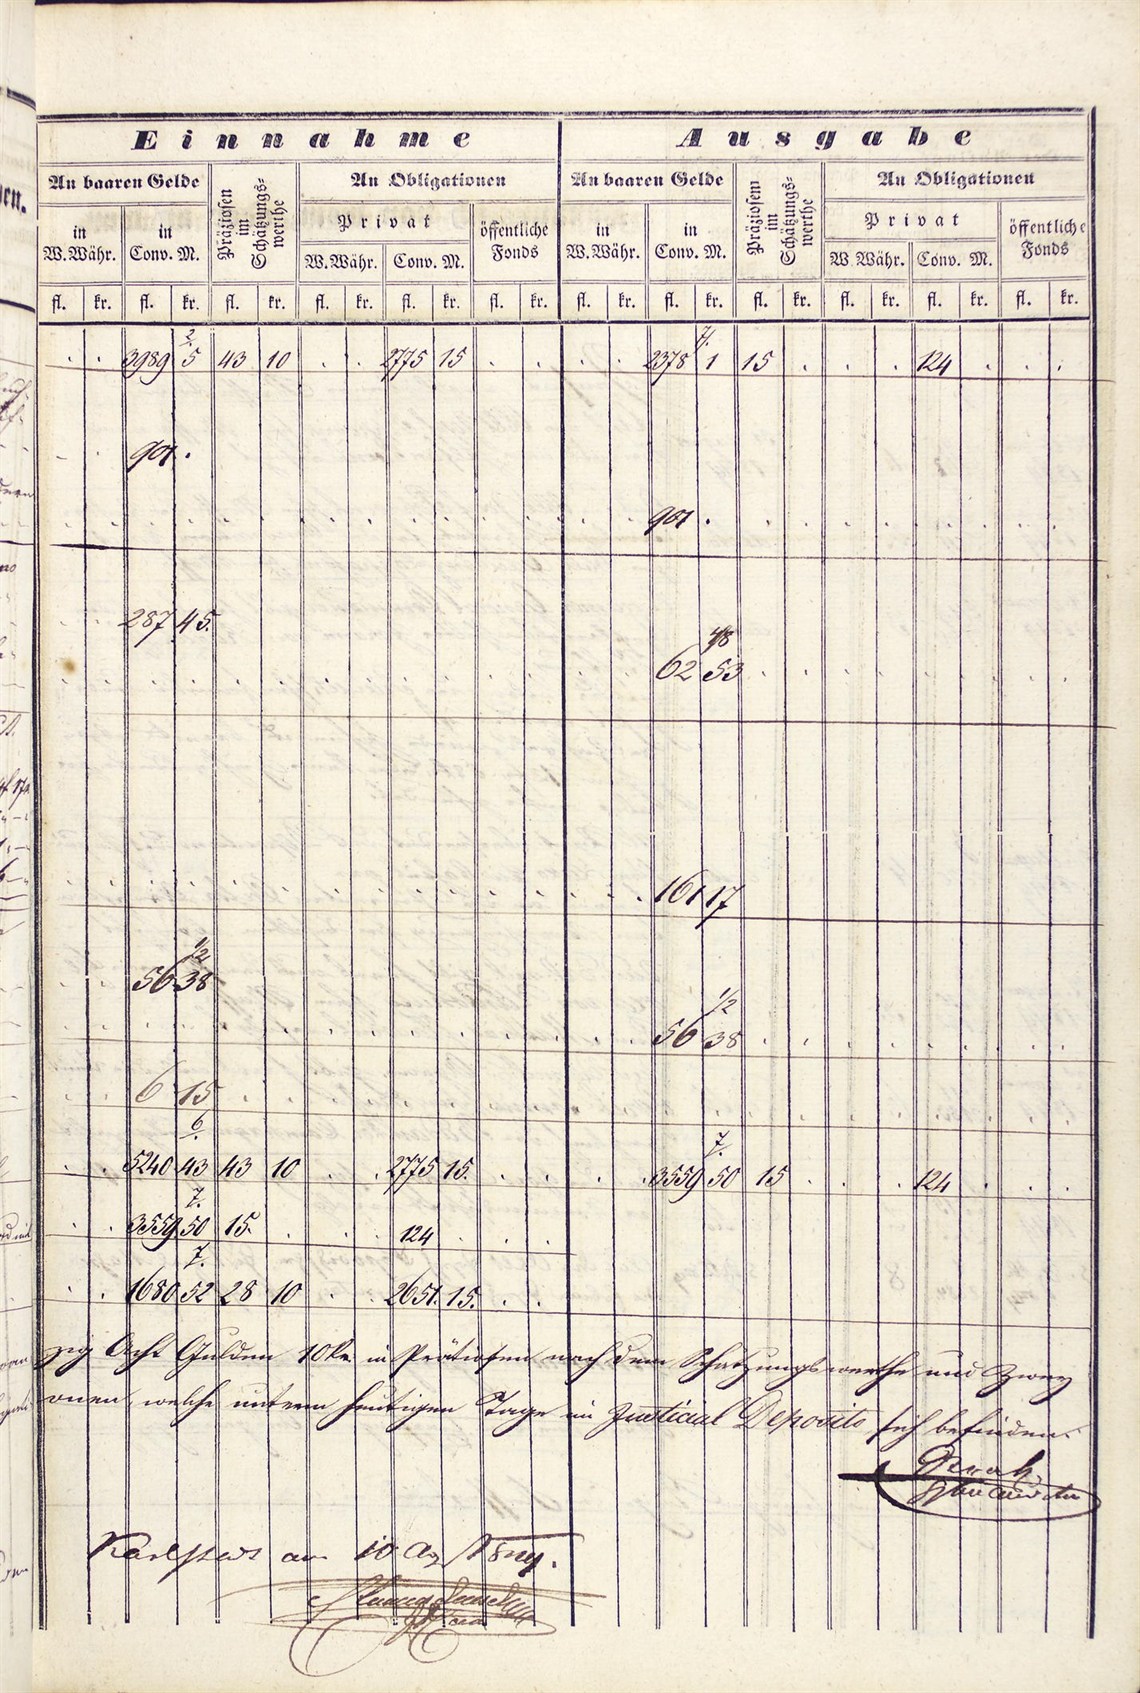 Einnahme Ausgabe
An baaren Gelde Präziosen im Schätzungs-werthe An Obligationen An baaren Gelde Präziosen im Schätzungs-werthe An Obligationen
in W.Währ. in Conv. M. Privat öffentliche Fonds in W.Währ. in Conv. M. Privat öffentliche Fonds
W.Währ. Conv. M. W.Währ. Conv. M.
fl. kr. fl. kr. fl. kr. fl. kr. fl. kr. fl. kr. fl. kr. fl. kr. fl. kr. fl. kr. fl. kr. fl. kr.
2. 4.
3989 5 43 10 2775 15 2378 1 15 124
901.
901.
287 45.
4/8
62 53
161 17
1/2
56 38
1/2
56 38
6 15
6. 7.
5240 43 43 10 2775 15. 3559 50 15 124
7.
3559 50 15. 124
7.
1680 52 28 10 2651. 15.
zig Acht Gulden 10 kr. in Prätiosen nach dem Schatzungswerthe und Zwey
onen, welche unterm heutigen Tage im Justicial Deposito sich befinden.
am 10